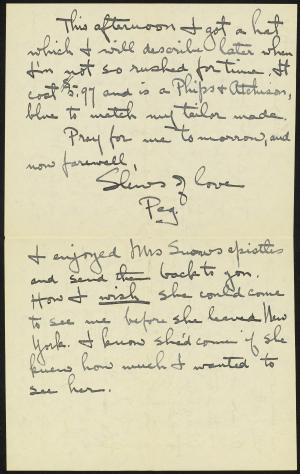 This afternoon I got a hat
which I will describe later when
I'm not so rushed for time. It
cost $5.97 and is a Phipps & Atchison,
blue to match my tailor made.
Pray for me tomorrow, and
now farewell,
Slews of love
Peg.
I enjoyed Mrs Snows epistles
and send them back to you.
How I wish she could come
to see me before she leaves New
York. I know she'd come if she
knew how much I wanted to
see her.